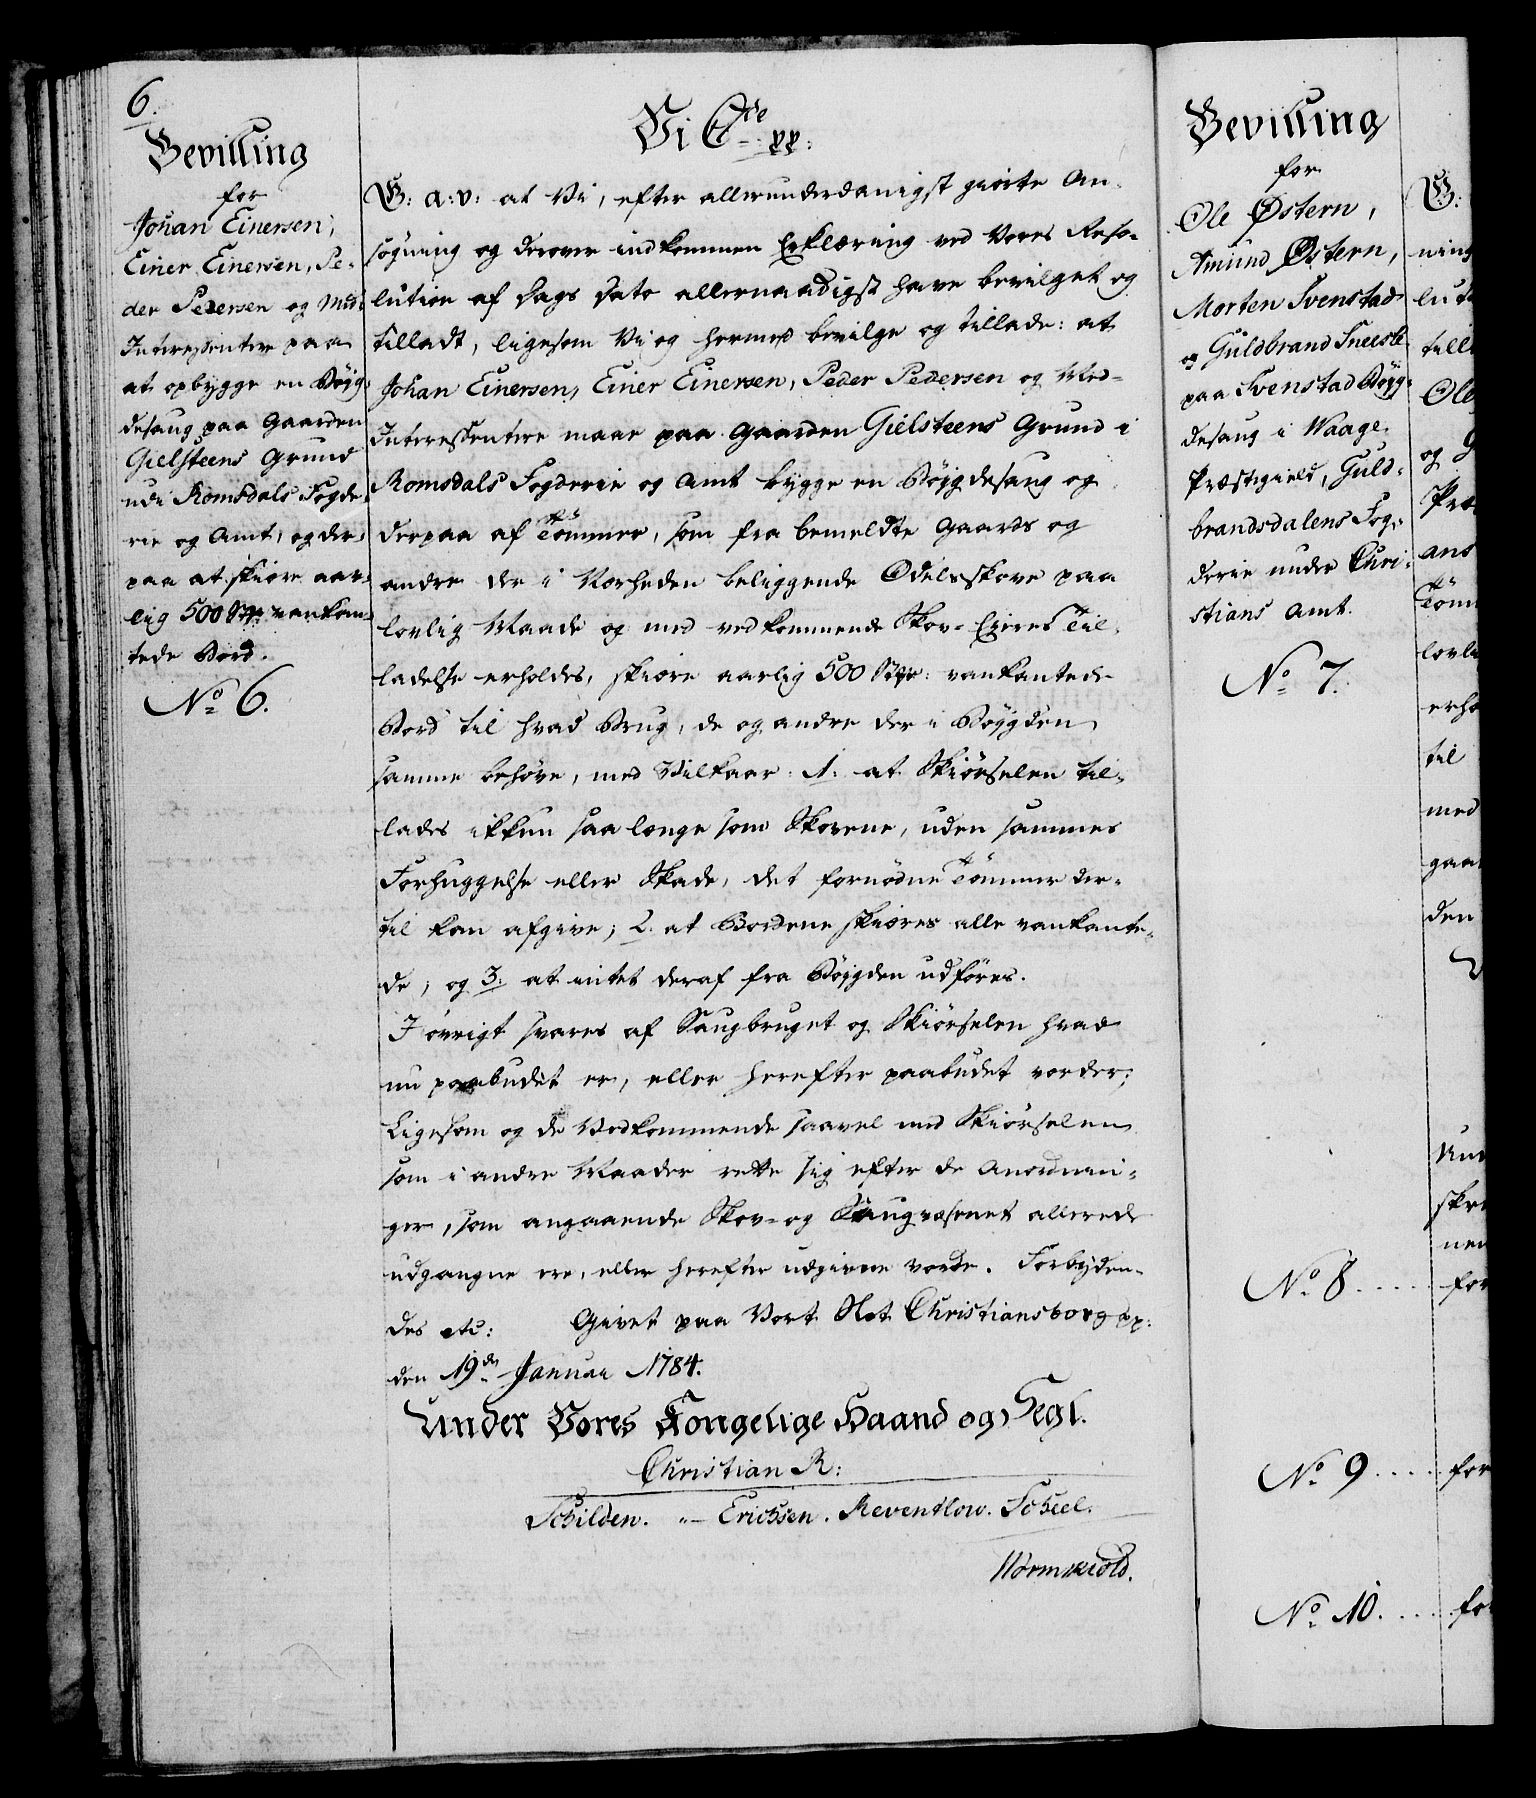 6.
Bevilling
for
Johan Einersen,
Einer Einersen, Pe-
der Pedersen og Med-
Interessentere paa
at opbygge en Bøyg-
desaug paa Gaarden
Gielsteens Grund
udi Romsdals Fogde-
rie og Amt, og der-
paa at skiære aar-
lig 500 Stkr vankan-
tede Bord.
No 6.
Vi C 7de pp:
G: a: v: at Vi, efter allerunderdanigst giorte An-
søgning og derover indkommen Erklæring ved Vores Reso-
lution af Dags Dato allernaadigst have bevilget og
tilladt, ligesom Vi og hermed bevilge og tillade: at
Johan Einersen, Einer Einersen, Peder Pedersen og Med-
Interessentere maae paa Gaarden Gielsteens Grund i
Romsdals Fogderie og Amt bygge en Bøygdesaug og
derpaa af Tømmer, som fra bemeldte Gaards og
andre der i Nærheden beliggende Odelsskove paa
lovlig Maade og med vedkommende Skov-Eieres Til-
ladelse erholdes, skiære aarlig 500 Stkr: vankantede
Bord til hvad Brug, de og andre der i Bøygden
samme behøve, med Vilkaar: 1. at Skiørselen til-
lades ikkun saa længe som Skovene, uden sammes
Forhuggelse eller Skade, det fornødne Tømmer der-
til kan afgive; 2. at Bordene skiæres alle vankante-
de, og 3. at intet deraf fra Bøygden udføres.
I øvrigt svares af Saugbruget og Skiørselen hvad
nu paabudet er, eller herefter paabudet vorder;
Ligesom og de Vedkommende saavel med Skiørselen
som i andre Maader rette sig efter de Anordnin-
ger, som angaaende Skov- og Saugvæsenet allerede
udgangne ere, eller herefter udgivne vorde. Forbyden-
des etc: Givet paa Vort Slot Christiansborg pp:
den 19de Januar 1784.
Under Vores Kongelige Haand og Segl.
Christian R:
Schilden. "— Erichsen. Reventlow. Scheel.
Wormskiold.
Bevilling
for
Ole Østern,
Amund Østern,
Morten Svenstad
og Guldbrand Sneesle
paa Svenstad Bøyg-
desaug i Waage
Præstegield, Guld-
brandsdalens Fog-
derie under Chri-
stians Amt.
No 7.
No 8 . . . . .
No 9 . . . . .
No 10. . . . .
G:
ning
lut
till
Ole
og G
Præ
ans
Tøm
lovli
erho
til
med
gaa
den
Un
skre
nen
for
for
fo